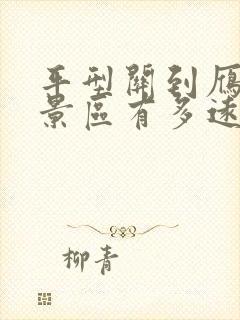 平型關到雁
景區有多遠
柳青